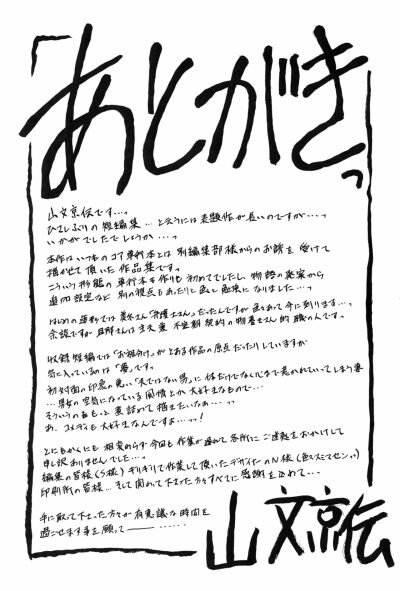 「あとがきっ
山文京伝です…っ
ひさしぶりの短編集…と云うには表題作が長いのですが…っ
いかがでしたでしょうか…っ
本作はいつものコアの単行本とは別編集部様からのお話を受けて
描かせて頂いた作品集ですっ
こういう形態の単行本を作りも初めてでしたし、物語の
追加設定など別の視点もあったりと色々勉強になりました…っ
はじめの
余談ですが旦那さんは主夫兼不定期契約の物書きさん的職の人ですっ
収録短編では「お裾分け」がとある作品の原点だったりしますが
気に入っているのは「夢」ですっ
初対面の印象の悪い「夫ではない男」に体だけでなく心まで惹かれていってしまう妻
…男女の空気になっている風情とか大好きなもので…
そういうのをもっと煮詰めて描きたいなぁ…っ
あ、コメディも大好きなんですよ…っ!
とにもかくにも相変わらず今回も作業が遅れて各所にご迷惑をおかけして
申し訳ありませんでした…っ
編集の皆様(S様)ギリギリで作業して頂いたデザイナーのN様(色々スミマセンっ)
印刷所の皆様…そして関わって下さった方々すべてに感謝を込めて…
手に取って下さった方々が有意義な時間を
過ごせます事を願って――……
山文京伝